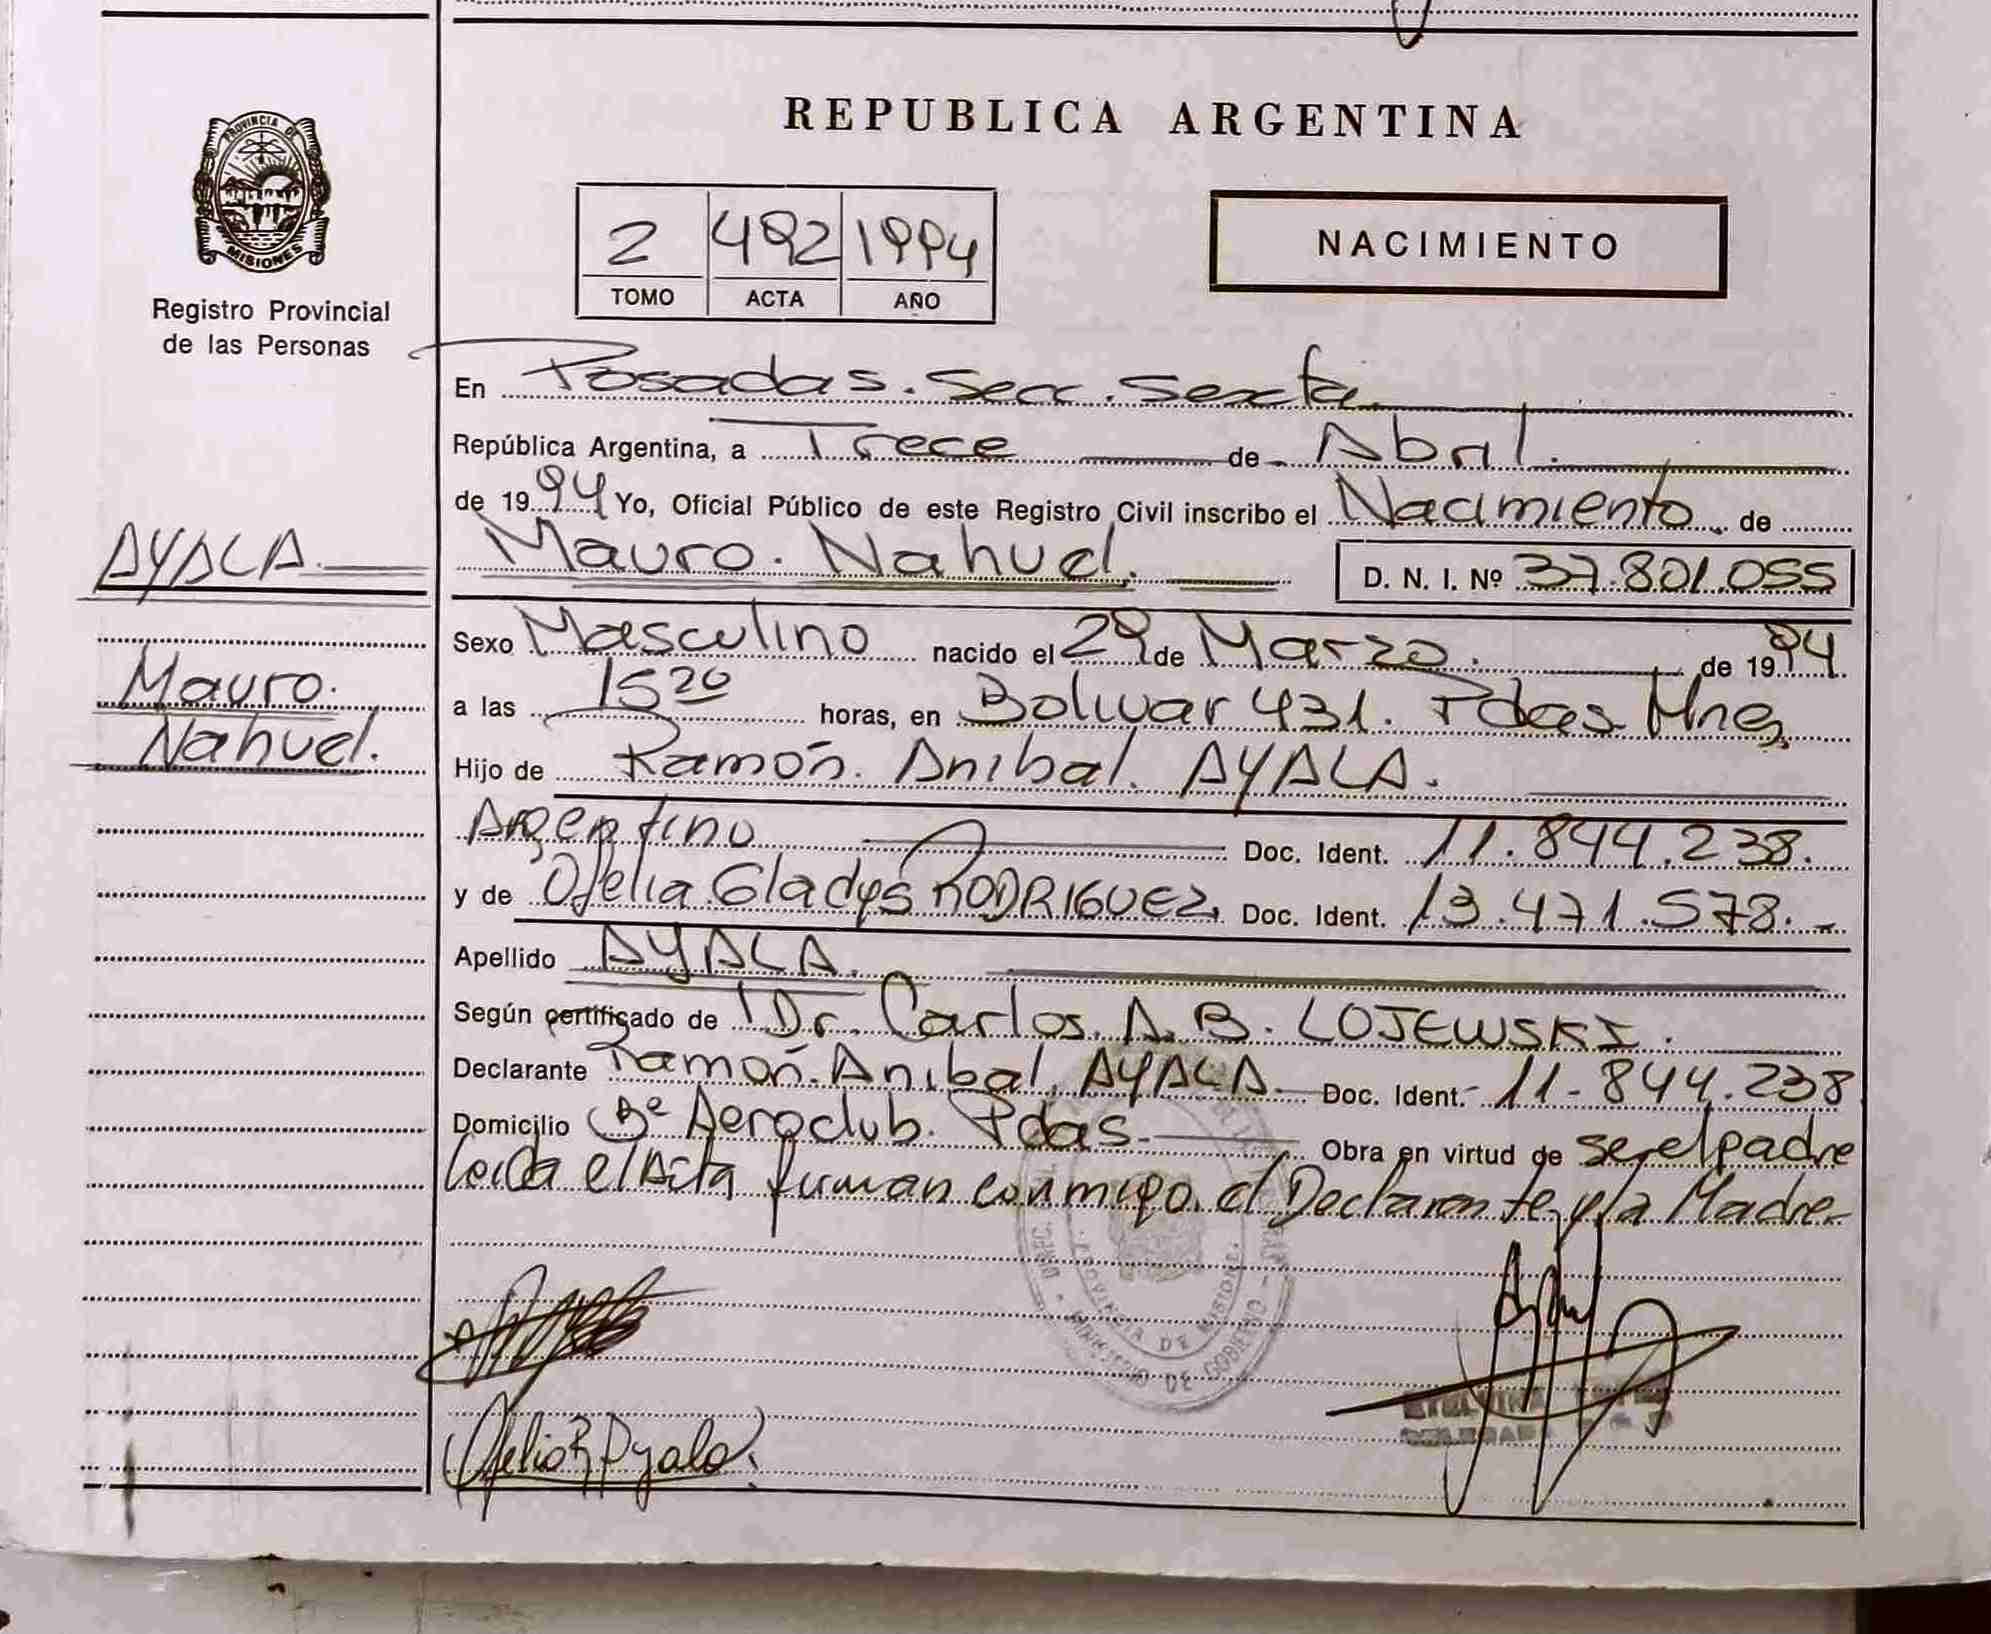 PROVINCIA DE
MISIONES
Registro Provincial
de las Personas
REPUBLICA ARGENTINA
2 492 1994
TOMO ACTA AÑO
NACIMIENTO
En Posadas. Secc. Sexta
República Argentina, a Trece de Abril.
de 1994 Yo, Oficial Público de este Registro Civil inscribo el Nacimiento de
AYALA
Mauro. Nahuel. D. N. I. Nº 37.801.055
Sexo Masculino nacido el 29 de Marzo. de 1994
Mauro.
a las 15 20 horas, en Bolivar 431. Pdas Mnes
Nahuel.
Hijo de Ramón. Anibal. AYALA.
Argentino Doc. Ident. 11.844.238.
y de Ofelia Gladys RODRIGUEZ, Doc. Ident. 13.471.578.-
Apellido AYALA.
Según certificado de Dr. Carlos. A. B. LOJEWSKI.
Declarante Ramón. Anibal. AYALA. Doc. Ident. 11-844.238
Domicilio Bº Aeroclub. Pdas. Obra en virtud de ser el padre
Leida el Acta firman conmigo el Declarante y la Madre
PROVINCIA DE MISIONES
MINISTERIO DE GOBIERNO
Ofelia R Ayala